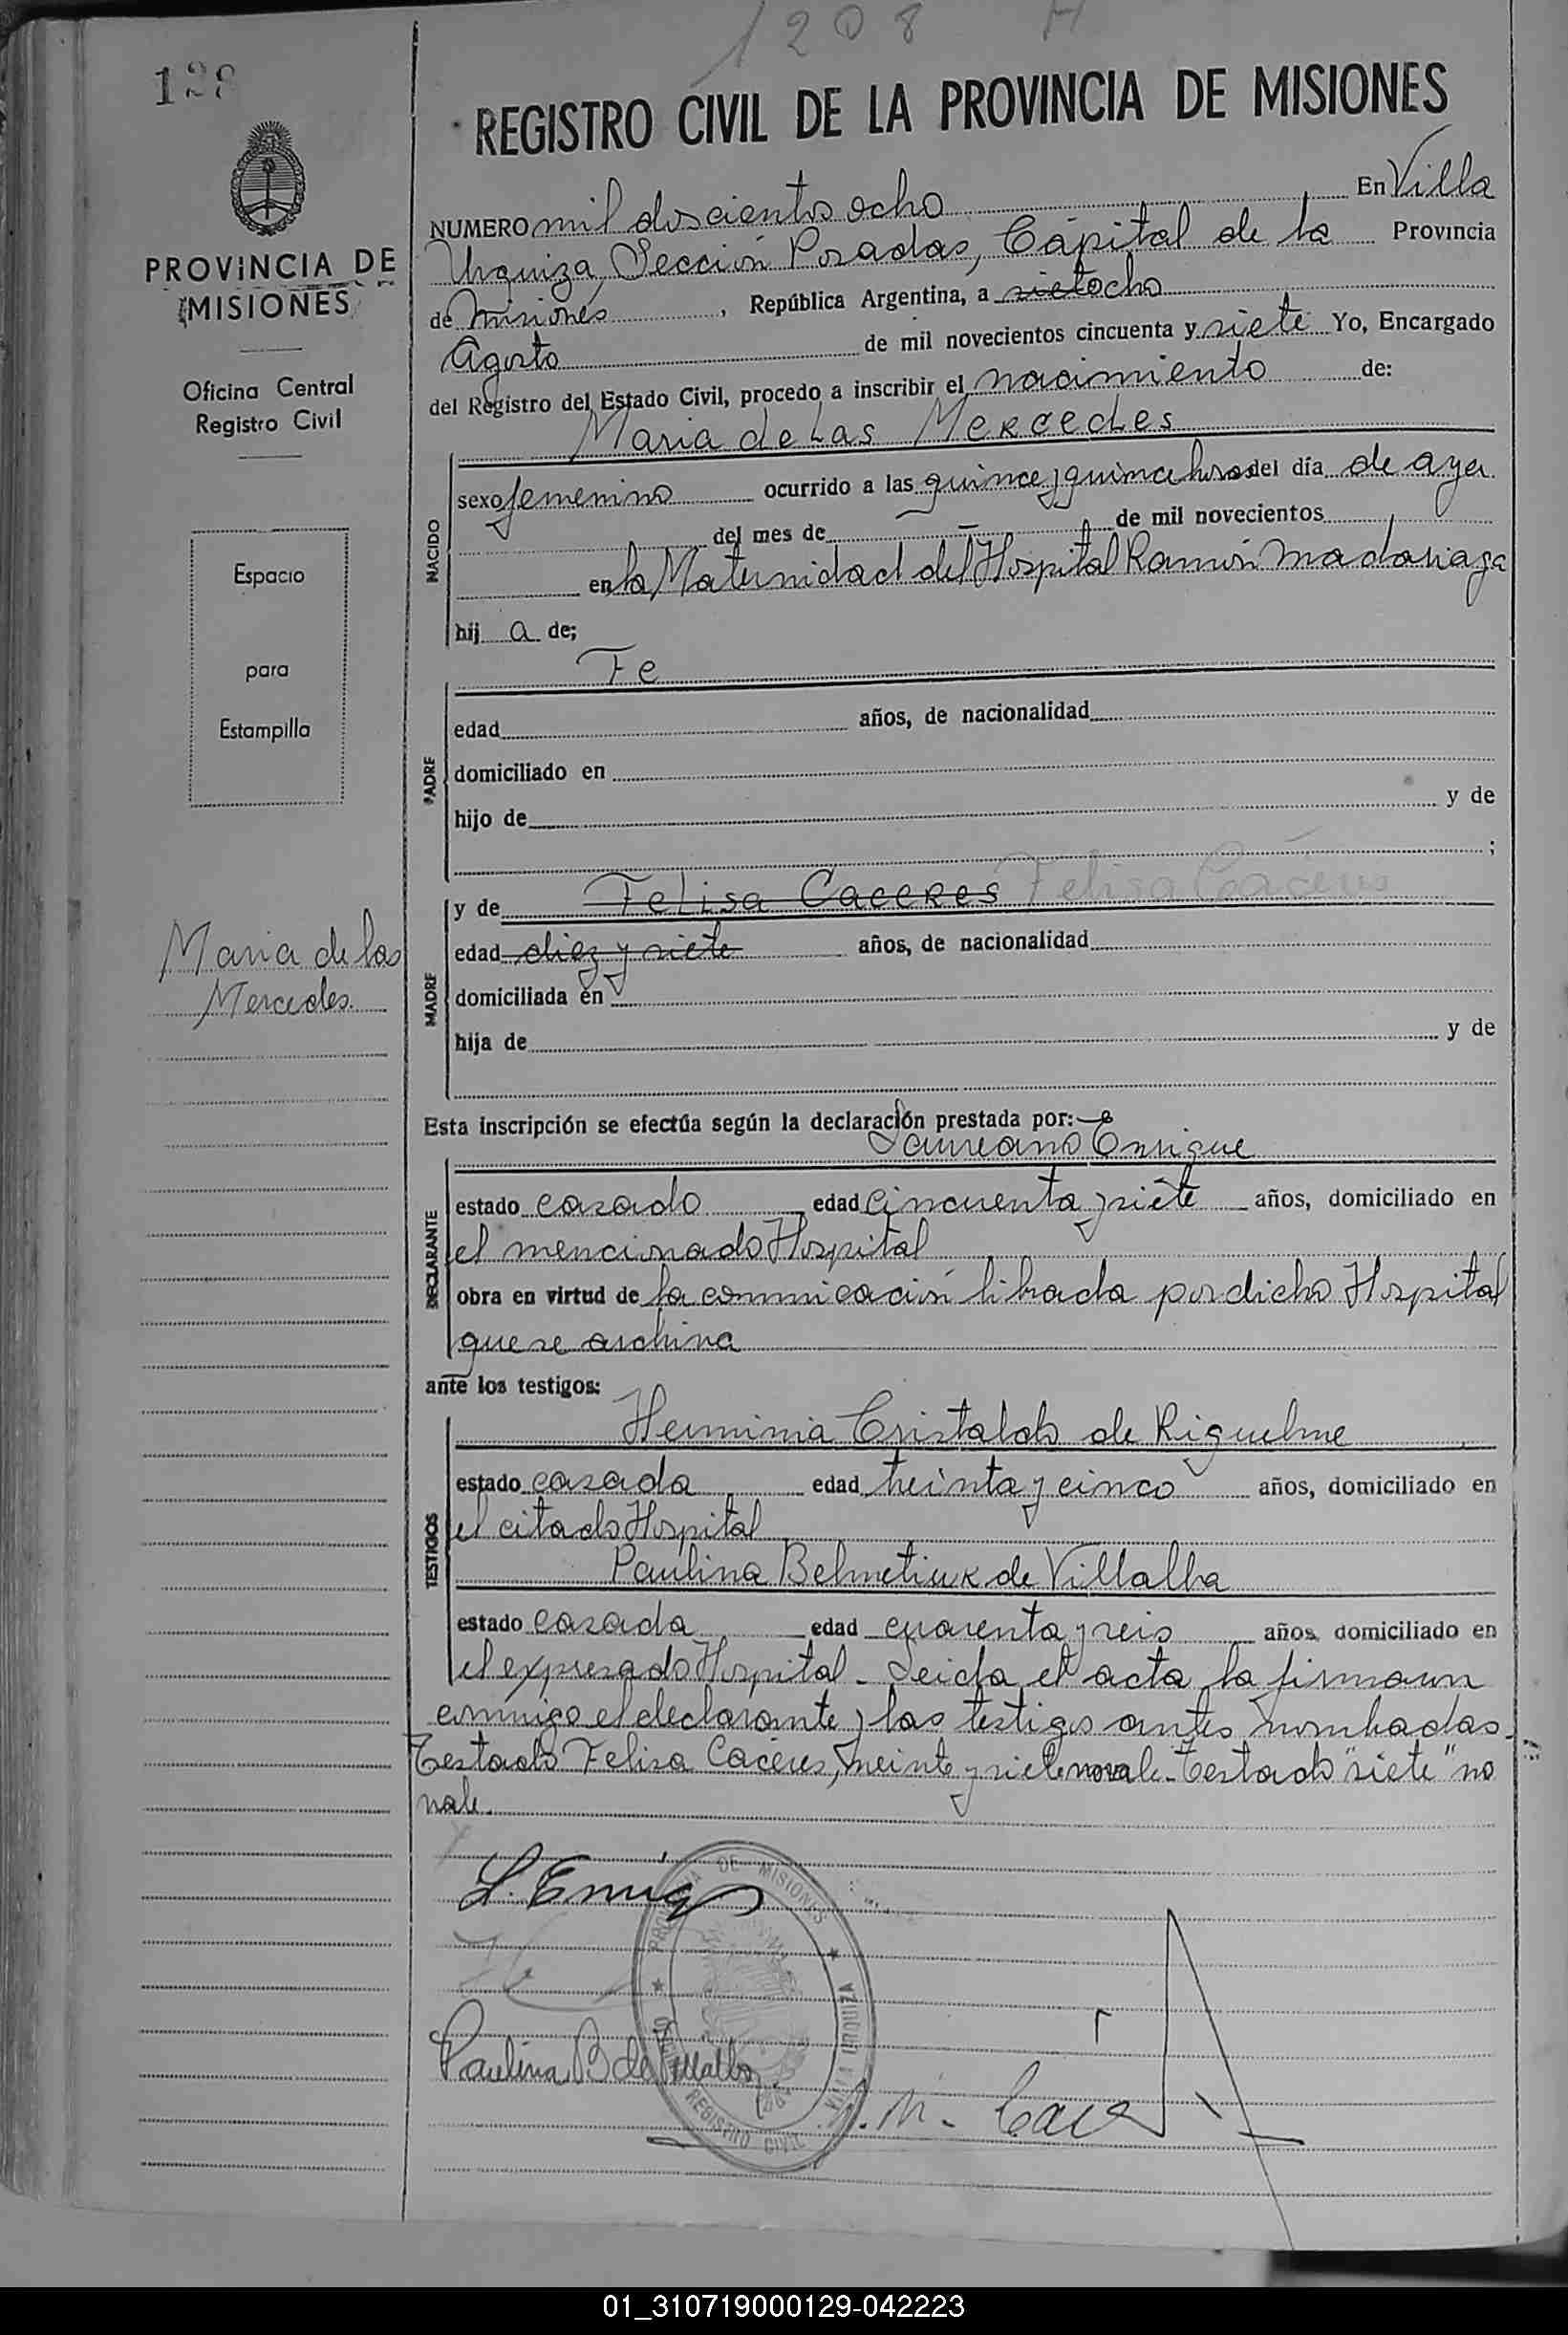 1208 H
138
REGISTRO CIVIL DE LA PROVINCIA DE MISIONES
PROVINCIA DE
MISIONES
Oficina Central
Registro Civil
Espacio
para
Estampilla
Maria de las
Mercedes
NUMERO mil doscientos ocho En Villa
Urquiza, Sección Posadas, Capital de la Provincia
de Misiones, República Argentina, a siete ocho
Agosto de mil novecientos cincuenta y siete Yo, Encargado
del Registro del Estado Civil, procedo a inscribir el nacimiento de:
Maria de Las Mercedes
NACIDO
sexo femenino ocurrido a las quince y quince horas del día de ayer
del mes de de mil novecientos
en la Maternidad del Hospital Ramón Madariaga
hij a de;
Fe
PADRE
edad años, de nacionalidad
domiciliado en
hijo de y de
;
MADRE
y de Felisa Caceres Felisa Cáceres
edad diez y siete años, de nacionalidad
domiciliada en
hija de y de
Esta inscripción se efectúa según la declaración prestada por:
Laureano Enrique
DECLARANTE
estado casado edad cincuenta y siete años, domiciliado en
el mencionado Hospital
obra en virtud de la comunicación librada por dicho Hospital
que se archiva
ante los testigos:
Herminia Cristaldo de Riquelme
TESTIGOS
estado casada edad treinta y cinco años, domiciliado en
el citado Hospital
Paulina Belmetiuk de Villalba
estado casada edad cuarenta y seis años domiciliado en
el expresado Hospital - Leida el acta la firmaron
conmigo el declarante y las testigos antes nombradas.
Testado Felisa Caceres, y siete no vale - Testado "siete" no
vale.
L. Enriq
PROVINCIA DE MISIONES
REGISTRO CIVIL
VILLA URQUIZA
Paulina B de Villalba
01_310719000129-042223